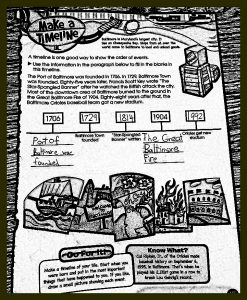 Make a
Timeline
Baltimore is Maryland's largest city. It
is on Chesapeake Bay. Ships from all over the
world come to Baltimore to load and unload goods.
A timeline is one good way to show the order of events.
Use the information in the paragraph below to fill in the blanks in
this timeline.
The Port of Baltimore was founded in 1706. In 1729, Baltimore Town
was founded. Eighty-five years later, Francis Scott Key wrote "The
Star-Spangled Banner" after he watched the British attack the city.
Most of the downtown area of Baltimore burned to the ground in
the Great Baltimore Fire of 1904. Eighty-eight years after that, the
Baltimore Orioles baseball team got a new stadium.
1706 1729 1814 1904 1992
Port of
Baltimore was
founded
Baltimore Town
founded
"Star-Spangled
Banner" written
The Great
Baltimore
Fire
Orioles get new
stadium
Go For It!
Make a timeline of your life. Start when you
were born and put in the most important
things that have happened to you. If you like,
draw a small picture showing each event.
Know What?
Cal Ripken, Jr., of the Orioles made
baseball history on September 6,
1995, in Baltimore. That's when he
played his 2,131st game in a row to
break Lou Gehrig's record.